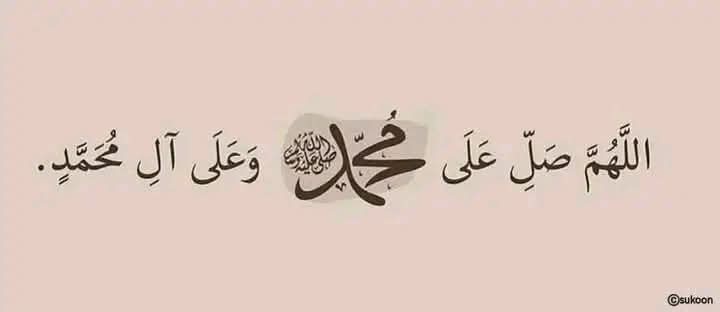 اللَّهُمَّ صَلِّ عَلَى مُحَمَّد صلى الله عليه وسلم وَعَلَى آلِ مُحَمَّدٍ.
©sukoon